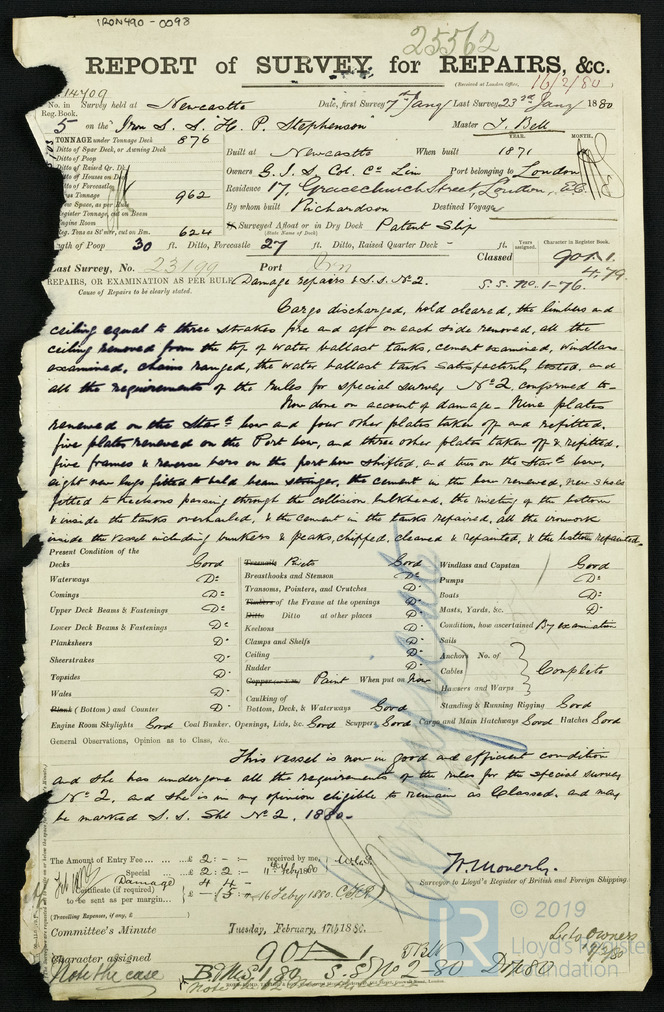 IRON490-0098
25562
REPORT of SURVEY for REPAIRS, &c.
(Received at London Office, 16/2/80
14709
No. in Survey held at Newcastle Date, first Survey 7th Jany Last Survey 23rd Jany 1880
Reg. Book.
5 on the "Iron S. S. "H. P. Stephenson" Master J. Bell
TONNAGE under Tonnage Deck 876
YEAR. MONTH.
Ditto of Spar Deck, or Awning Deck
Built at Newcastle When built 1871
Ditto of Poop
Ditto of Raised Qr. Dk
Owners G. I. S. Col. Co Lim Port belonging to London
Ditto of Houses on Deck
Ditto of Forecastle
Residence 17, Gracechurch Street, London, E.C.
Gross Tonnage 962
By whom built Richardson Destined Voyage
Register Tonnage, cut on Beam
Engine Room
Surveyed Afloat or in Dry Dock Patent Slip
(State Name of Dock)
Reg. Tons as St'mr, cut on Bm. 624
Length of Poop 30 ft. Ditto, Forecastle 27 ft. Ditto, Raised Quarter Deck - ft.
Years assigned. Character in Register Book.
Last Survey, No. 23199 Port Classed 90A.1.
4.79
REPAIRS, OR EXAMINATION AS PER RULE Damage repairs & S.S. No 2. S.S. No. 1-76.
Cause of Repairs to be clearly stated.
Cargo discharged, hold cleared, the limbers and
ceiling equal to three strakes fore and aft on each side removed, all the
ceiling removed from the top of water ballast tanks, cement examined, windlass
examined, chains ranged, the water ballast tanks satisfactorily tested, and
all the requirements of the rules for special survey No 2 conformed to-
Now done on account of damage- Nine plates
renewed on the Starbd bow and four other plates taken off and refitted.
five plates renewed on the Port bow, and three other plates taken off & refitted.
five frames & reverse bars on the port bow shifted, and two on the Starbd bow,
eight new lugs fitted to hold beam stringer, the cement in the bow renewed, new shoes
fitted to keelsons passing through the collision bulkhead, the riveting of the bottom
& inside the tanks overhauled, & the cement in the tanks repaired, all the ironwork
inside the vessel including bunkers & peaks, chipped, cleaned & repainted, & the bottom repainted.
Present Condition of the
Decks Good
Waterways Do
Comings Do
Upper Deck Beams & Fastenings Do
Lower Deck Beams & Fastenings Do
Planksheers Do
Sheerstrakes Do
Topsides Do
Wales Do
Plank (Bottom) and Counter Do
Treenails Rivets Good
Breasthooks and Stemson Do
Transoms, Pointers, and Crutches Do
Timbers of the Frame at the openings Do
Ditto Ditto at other places Do
Keelsons Do
Clamps and Shelfs Do
Ceiling Do
Rudder Do
Copper (or Y.M.) Paint When put on Now
Caulking of
Bottom, Deck, & Waterways Good
Windlass and Capstan Good
Pumps Do
Boats Do
Masts, Yards, &c. Do
Condition, how ascertained By examination
Sails
Anchors No. of
Cables Complete
Hawsers and Warps
Standing & Running Rigging Good
Engine Room Skylights Good Coal Bunker, Openings, Lids, &c. Good Scuppers Good Cargo and Main Hatchways Good Hatches Good
General Observations, Opinion as to Class, &c.
This vessel is now in good and efficient condition
and she has undergone all the requirements of the rules for the special survey
No 2, and she is in my opinion eligible to remain as Classed, and may
be marked S. S. Shl No 2, 1880-
The Amount of Entry Fee ... £ 2 : - : - received by me,
Special ... £ 2 : 2 : - Feby 1880
Damage 4 4 -
Certificate (if required) ... £ - : 5 : - 16 Feby 1880
to be sent as per margin.
(Travelling Expenses, if any, £ )
W. Moverly.
Surveyor to Lloyd's Register of British and Foreign Shipping.
Committee's Minute Tuesday, February, 17th 1880.
Character assigned 90A 1
Note the case
B&MS 1.80 S.S No 2-80
© 2019
Lloyd's Register
Foundation
LR